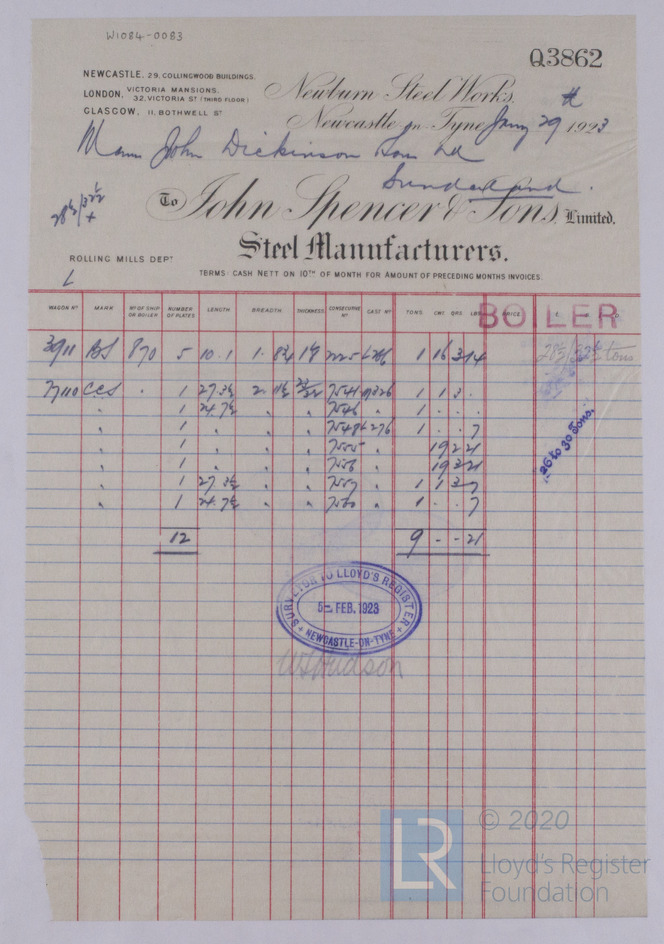 W1084-0083
Q3862
NEWCASTLE, 29, COLLINGWOOD BUILDINGS.
LONDON, VICTORIA MANSIONS,
32, VICTORIA ST (THIRD FLOOR)
GLASGOW, 11, BOTHWELL ST
Newburn Steel Works.
Newcastle-on-Tyne Jany 29 1923
John Dickinson Sons Ld
Sunderland.
To John Spencer & Sons, Limited.
Steel Manufacturers.
ROLLING MILLS DEPT
TERMS: CASH NETT ON 10TH OF MONTH FOR AMOUNT OF PRECEDING MONTHS INVOICES.
BOILER
WAGON NO MARK NO OF SHIP OR BOILER NUMBER OF PLATES LENGTH BREADTH THICKNESS CONSECUTIVE NO CAST NO TONS CWT QRS LBS PRICE £ S D
3911 BS 870 5 10.1 1 16 3 14
CCS 1 1 1 3
1 24.7½ 7546 1 . . .
1 1 . . 7
1 19 2 21
1 7556 19 3 21
1 1 1 3 7
1 24.7½ 7560 1 . . 7
12 9 - - 21
26 to 30 Tons.
SURVEYOR TO LLOYD'S REGISTER
5- FEB. 1923
NEWCASTLE-ON-TYNE
W Hudson
LR
© 2020
Lloyd's Register
Foundation